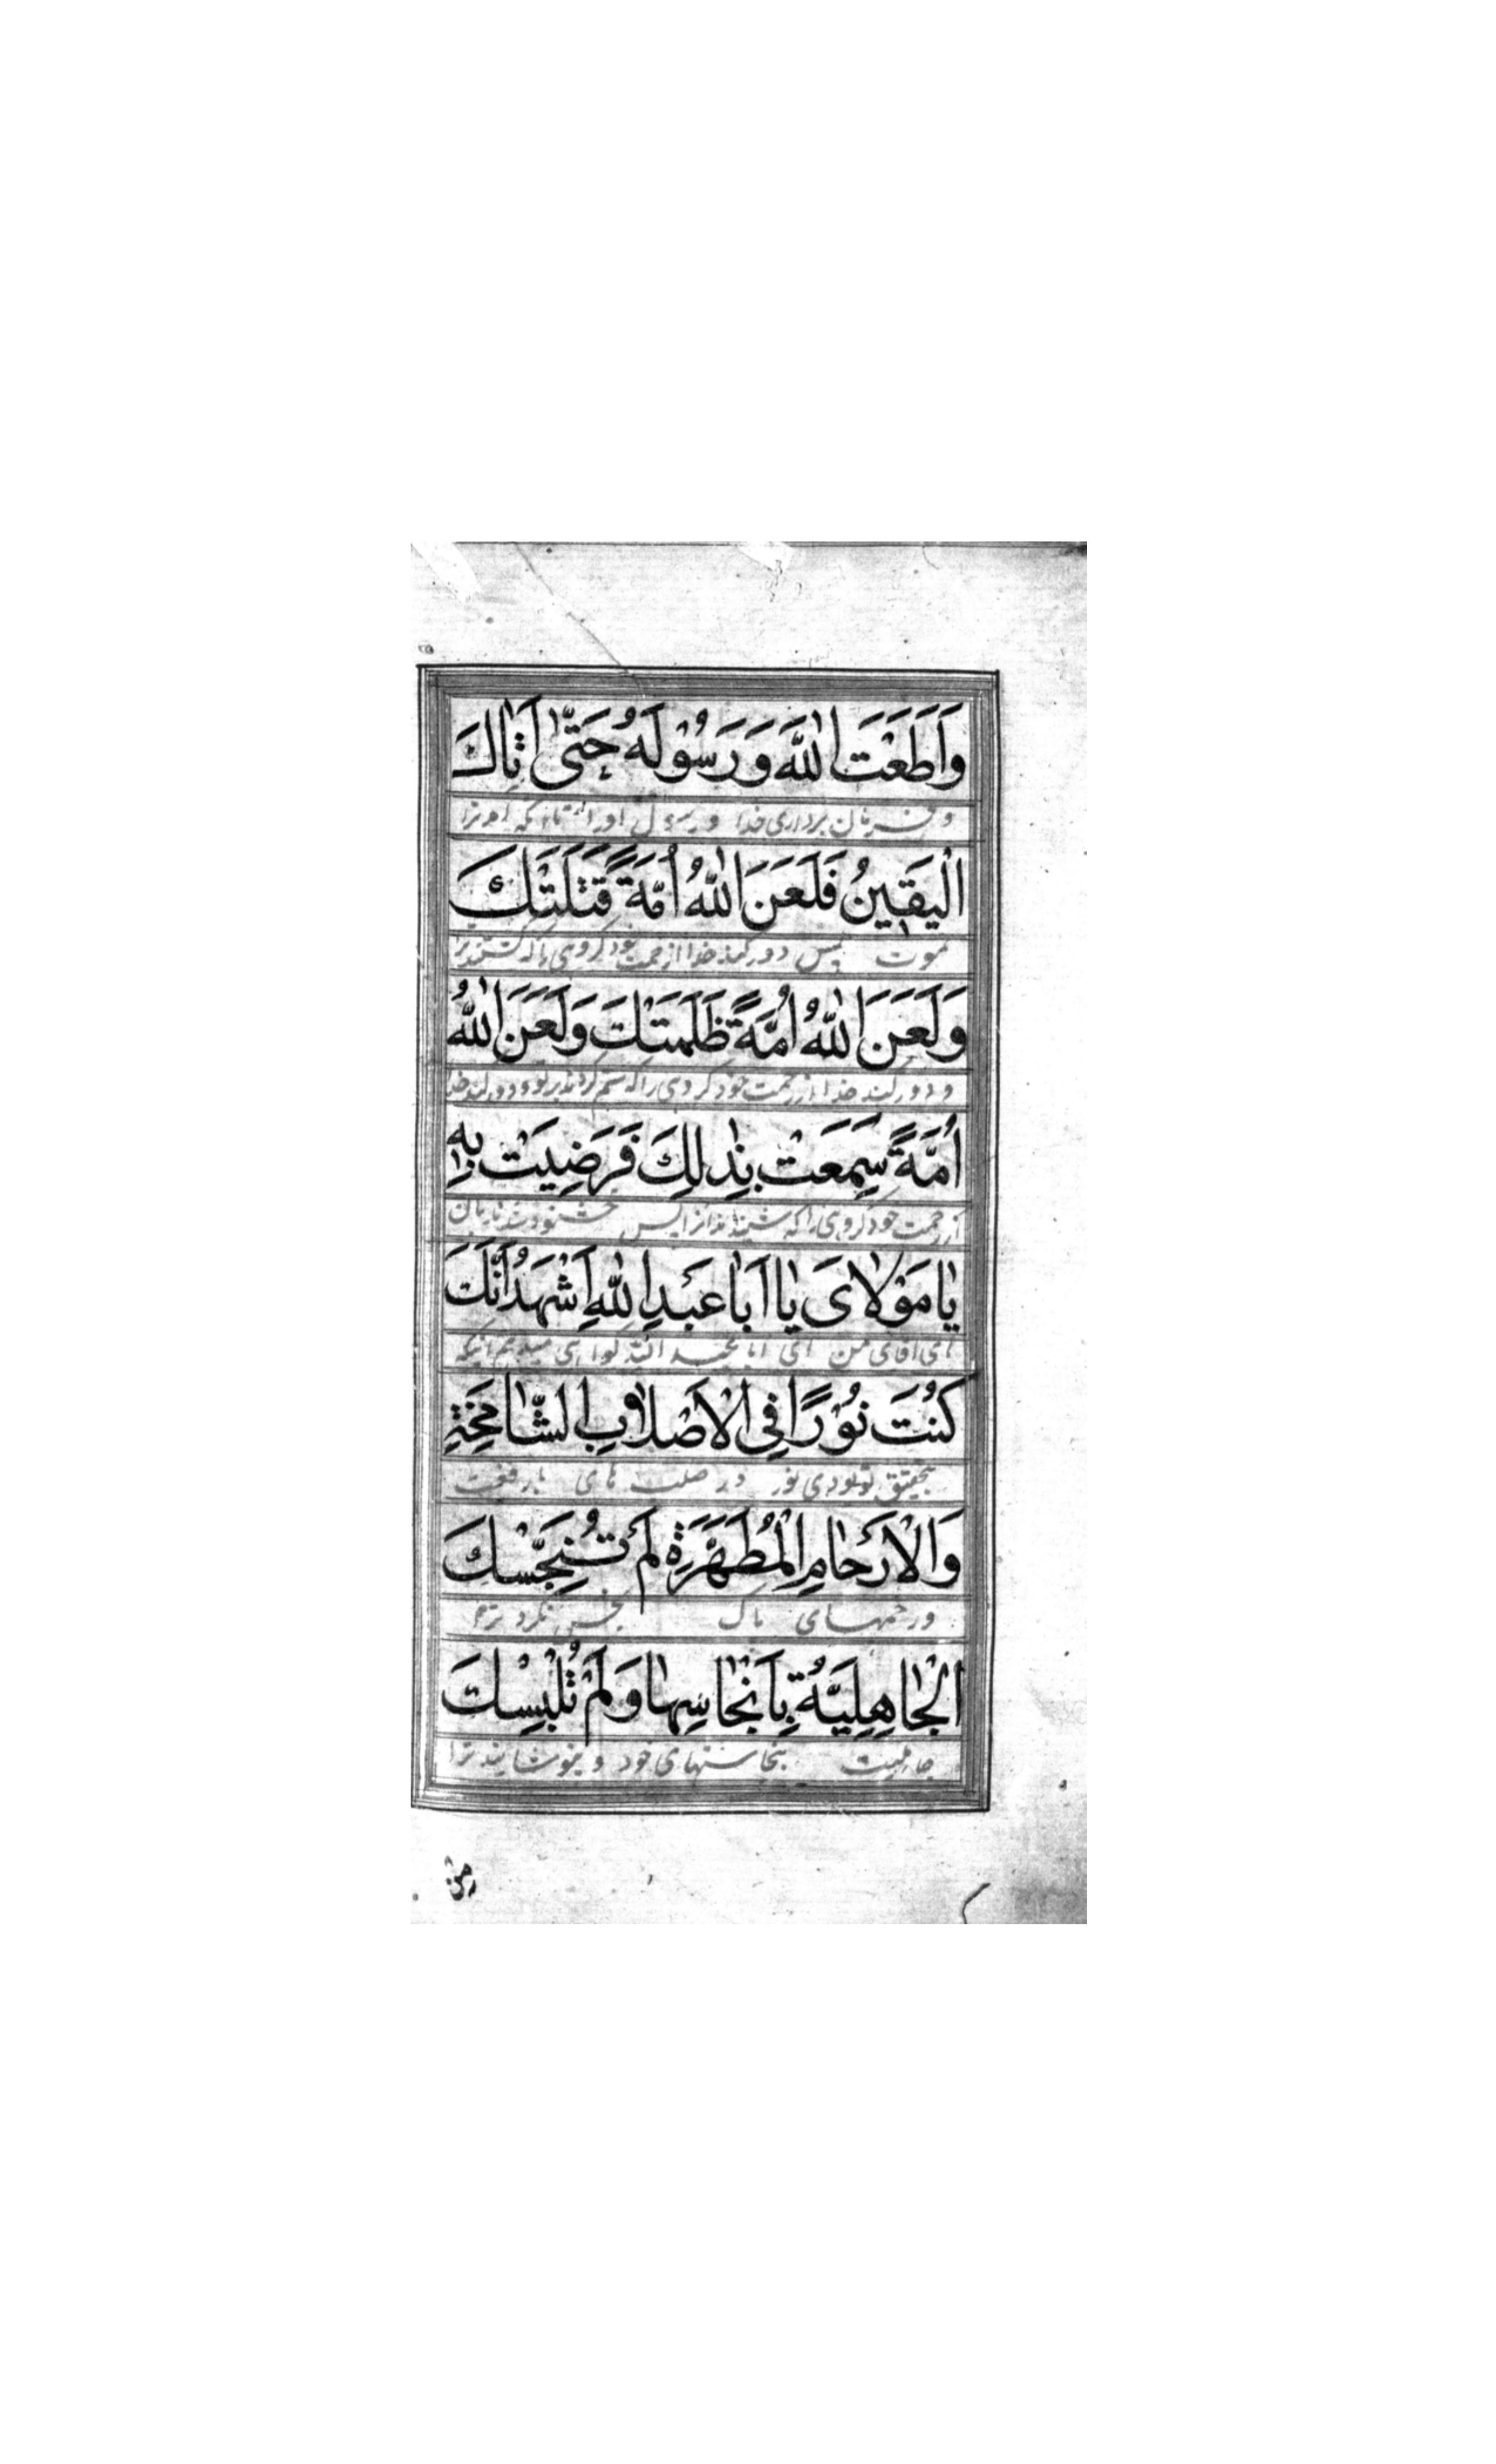 وَاَطَعْتَ اللّٰهَ وَرَسُوْلَهُ حَتّٰى اَتٰاكَ
و فرمان برداری خدا و رسول او را تا آنکه آمد ترا
الْيَقِينُ فَلَعَنَ اللّٰهُ اُمَّةً قَتَلَتْكَ
موت پس دور کند خدا از رحمت خود گروهی را که کشتند ترا
وَلَعَنَ اللّٰهُ اُمَّةً ظَلَمَتْكَ وَلَعَنَ اللّٰهُ
و دور کند خدا از رحمت خود گروهی را که ستم کردند بر تو و دور کند خدا
اُمَّةً سَمِعَتْ بِذٰلِكَ فَرَضِيَتْ بِهِ
از رحمت خود گروهی را که شنیدند انرا پس خشنود شدند بان
يٰا مَوْلٰاىَ يٰا اَبٰا عَبْدِ اللّٰهِ اَشْهَدُ اَنَّكَ
ای اقای من ای ابا عبد الله گواهی میدهم اینکه
كُنْتَ نُوْرًا فِى الْاَصْلٰابِ الشّٰامِخَةِ
بتحقیق تو بودی نور در صلب های با رفعت
وَالْاَرْحٰامِ الْمُطَهَّرَةِ لَمْ تُنَجِّسْكَ
و رحمهای پاک نجس نکرد ترا
الْجٰاهِلِيَّةُ بِاَنْجٰاسِهٰا وَلَمْ تُلْبِسْكَ
جاهلیت بنجاستهای خود و نپوشانیدند ترا
من